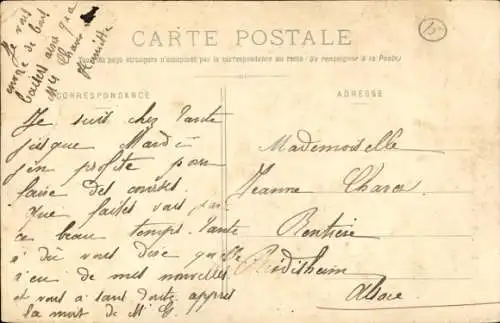 Je vous
envoie de bons
baisers ainsi qu'à
My Charer
Henriette
15
CARTE POSTALE
Tous les pays étrangers n'acceptent pas la correspondance au recto (Se renseigner à la Poste)
CORRESPONDANCE
ADRESSE
Je suis chez Tante
jusque Mardi
j'en profite pour
faire des courses.
Que faites vous par
ce beau temps. Tante
a dû vous dire qu'elle
n'eu de mes nouvelles
et vous a sans doute appris
la mort de Mr G.
Mademoiselle
Jeanne Charer
Rentière
Alsace